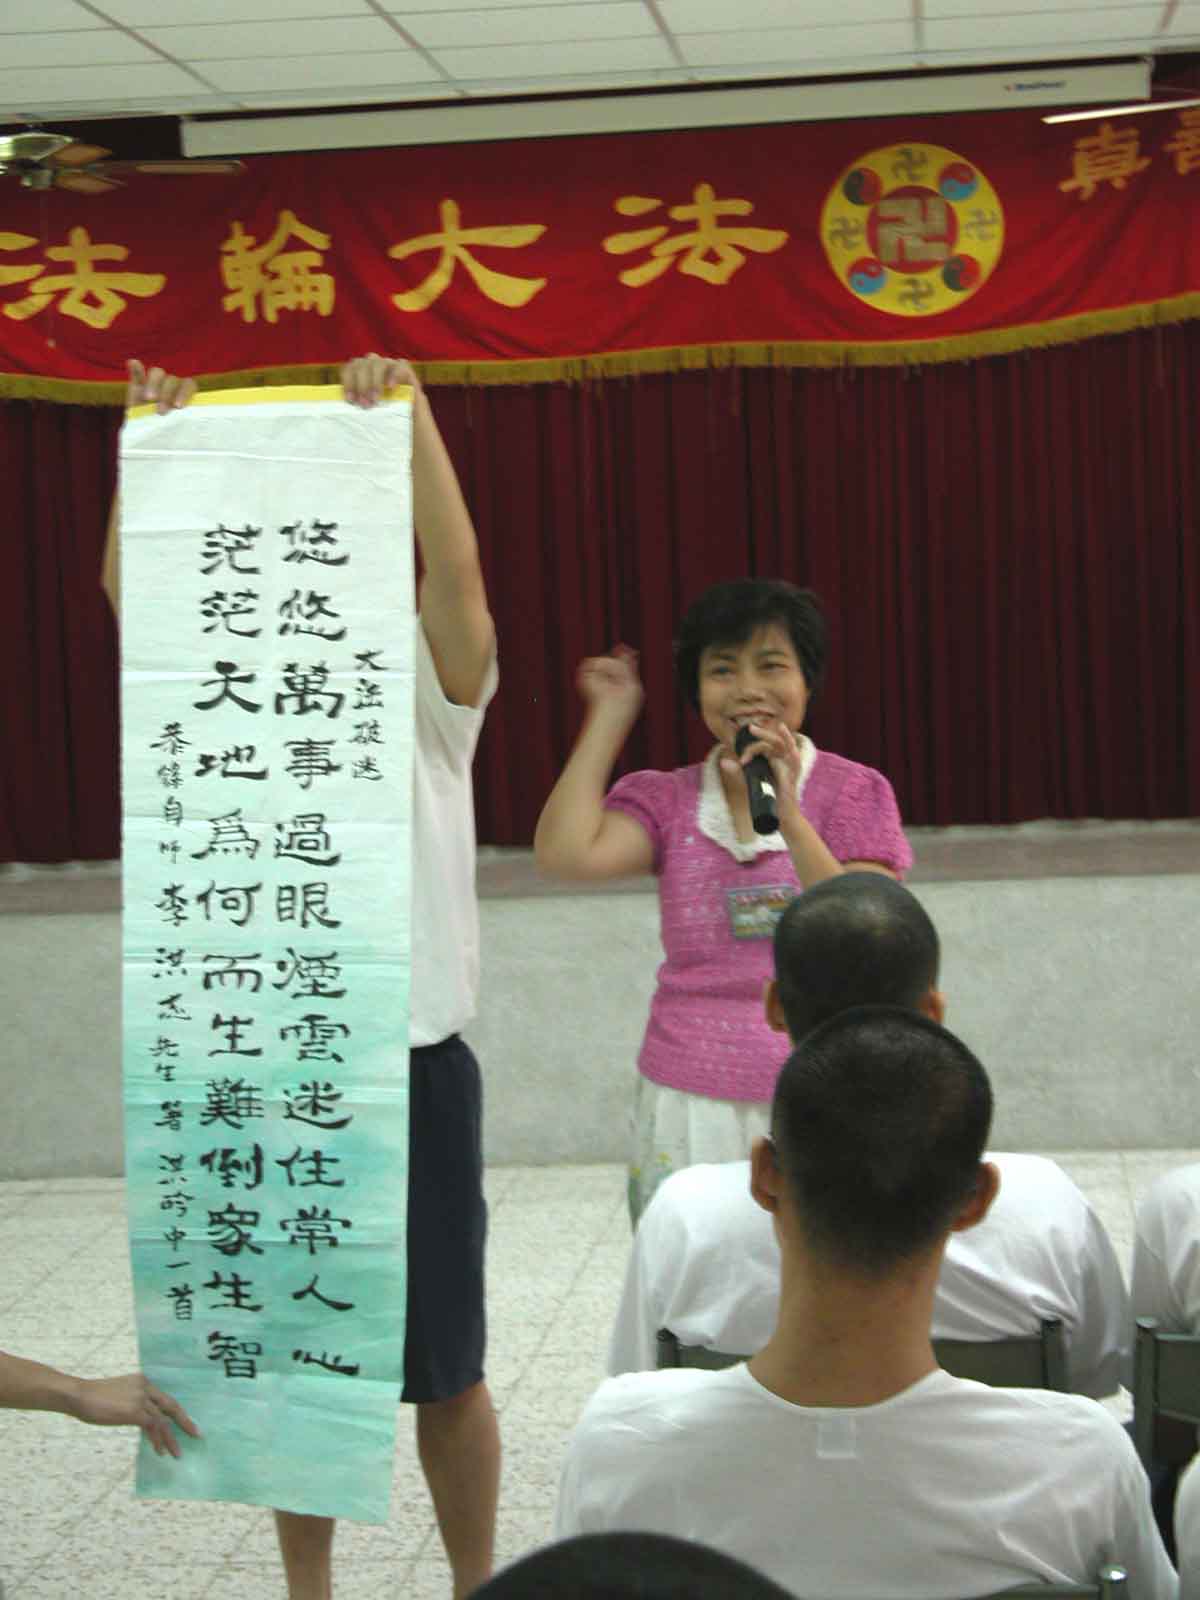 法輪大法
卍
真善
大法破迷
悠悠萬事過眼煙雲迷住常人心
茫茫天地為何而生難倒眾生智
恭錄自師李洪志先生著洪吟中一首